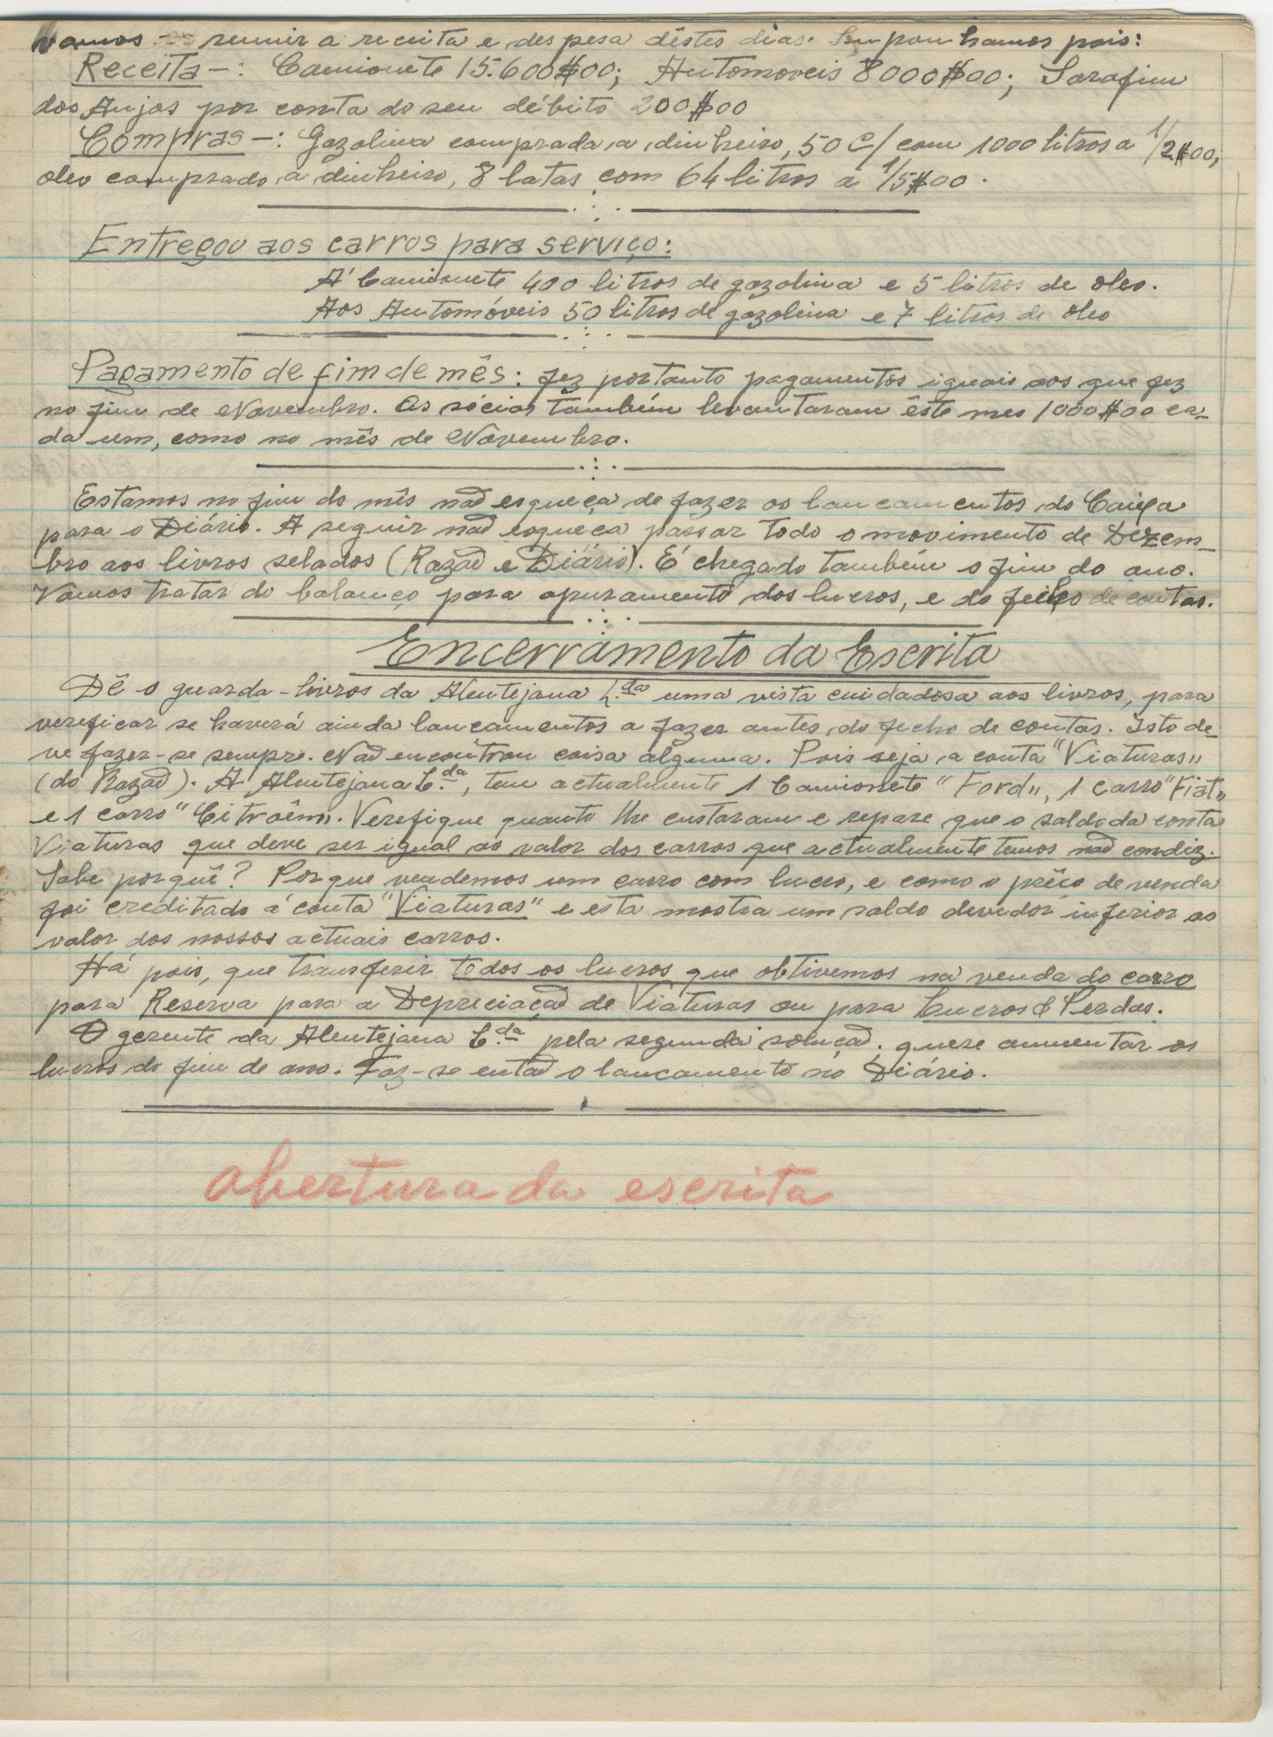 vamos reunir a receita e despesa dêstes dias. Suponhamos pois:
Receita-: Camionete 15.600$00; Automoveis 8000$00; Sarafim
dos Anjos por conta do seu débito 200$00
Compras-: Gazolina comprada a dinheiro, 50 c/ com 1000 litros a 1/2$00;
oleo comprado a dinheiro, 8 latas com 64 litros a 1/5$00.
Entregou aos carros para serviço:
A' Camionete 400 litros de gazolina e 5 litros de oleo.
Aos Automóveis 50 litros de gazolina e 7 litros de oleo
Pagamento de fim de mês: fez portanto pagamentos iguais aos que fez
no fim de Novembro. Os sócios também levantaram êste mes 1000$00 ca-
da um, como no mês de Novembro.
Estamos no fim do mês não esqueça de fazer os lancamentos do Caixa
para o Diário. A seguir não esqueca passar todo o movimento de Dezem-
bro aos livros selados (Razão e Diário). É chegado também o fim do ano.
Vamos tratar do balanço para apuramento dos lucros, e do fecho de contas.
Encerramento da Escrita
Dê o guarda-livros da Alentejana L.da uma vista cuidadosa aos livros, para
vereficar se haverá ainda lancamentos a fazer antes do fecho de contas. Isto de-
ve fazer-se sempre. Não encontrou coisa alguma. Pois seja a conta "Viaturas"
(do Razão). A Alentejana L.da, tem actualmente 1 Camionete "Ford", 1 carro "Fiat"
e 1 carro "Citroêm". Verefique quanto lhe custaram e repare que o saldo da conta
Viaturas que deve ser igual ao valor dos carros que actualmente temos não condiz.
Sabe porquê? Porque vendemos um carro com lucro, e como o prêco de venda
foi creditado á conta "Viaturas" e esta mostra um saldo devedor inferior ao
valor dos nossos actuais carros.
Há pois, que transferir todos os lucros que obtivemos na venda do carro
para Reserva para a Depreciação de Viaturas ou para Lucros & Perdas.
O gerente da Alentejana L.da pela segunda solução. quere aumentar os
lucros do fim de ano. Faz-se então o lancamento no Diário.
abertura da escrita